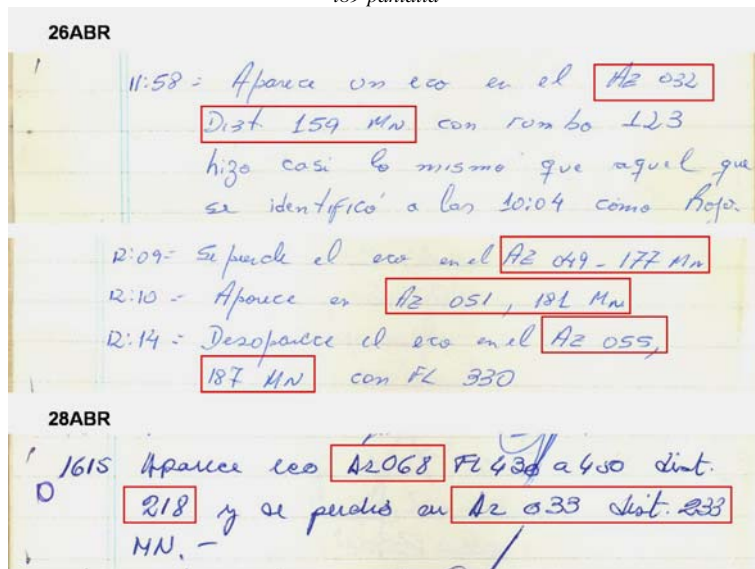 189 pantalla
26ABR
11:58 = Aparece un eco en el Az 032
Dist 159 MN con rumbo 123
hizo casi lo mismo que aquel que
se identificó a las 10:04 como Rojo.
12:09= Se pierde el eco en el Az 049 - 177 MN
12:10 = Aparece en Az 051, 181 MN
12:14 = Desaparece el eco en el Az 055,
187 MN con FL 330
28ABR
1615 Aparece eco Az068 FL 430 a 450 dist.
218 y se perdió en Az 033 dist. 233
MN. -